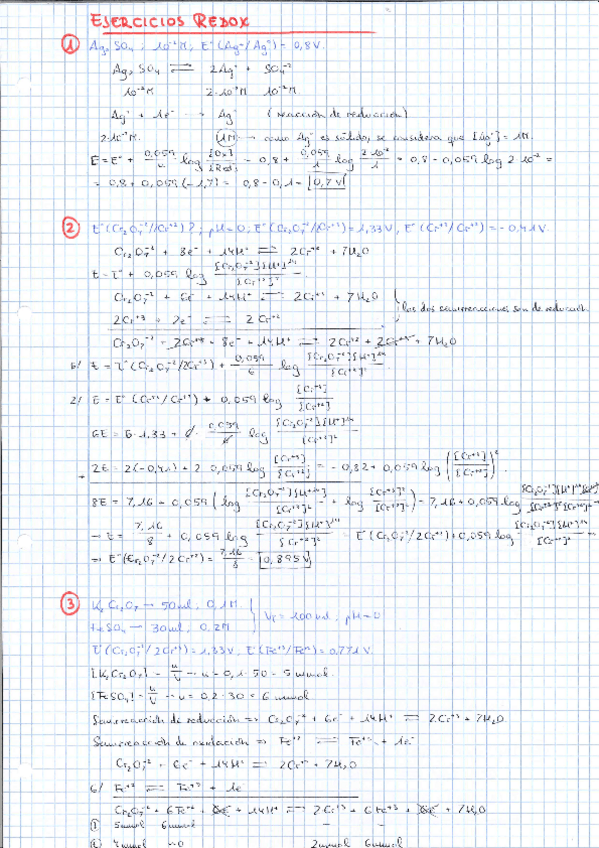 EJERCICIOS REDOX
① Ag₂SO₄ ; 10⁻²M ; E°(Ag⁺/Ag°) = 0,8V.
Ag₂SO₄ ⇌ 2Ag⁺ + SO₄⁻²
10⁻²M 2·10⁻²M 10⁻²M
Ag⁺ + 1e⁻ → Ag° (reacción de reducción)
2·10⁻²M. 1M → como Ag° es sólido, se considera que [Ag°] = 1M.
E = E° + 0,059/n log [Ox]/[Red] = 0,8 + 0,059/1 log 2·10⁻²/1 = 0,8 - 0,059 log 2·10⁻² =
= 0,8 + 0,059(-1,7) = 0,8 - 0,1 = 0,7V
② E°(Cr₂O₇⁻²/Cr⁺²)? ; pH=0 ; E°(Cr₂O₇⁻²/Cr⁺³) = 1,33V, E°(Cr⁺³/Cr⁺²) = -0,41V.
Cr₂O₇⁻² + 8e⁻ + 14H⁺ ⇌ 2Cr⁺² + 7H₂O
E = E° + 0,059 log [Cr₂O₇⁻²][H⁺]¹⁴/[Cr⁺²]²
Cr₂O₇⁻² + 6e⁻ + 14H⁺ ⇌ 2Cr⁺³ + 7H₂O
2Cr⁺³ + 2e⁻ ⇌ 2Cr⁺² } las dos semirreacciones son de reducción.
Cr₂O₇⁻² + 2Cr⁺³ + 8e⁻ + 14H⁺ ⇌ 2Cr⁺² + 2Cr⁺³ + 7H₂O
6/ E = E°(Cr₂O₇⁻²/2Cr⁺³) + 0,059/6 log [Cr₂O₇⁻²][H⁺]¹⁴/[Cr⁺³]²
2/ E = E°(Cr⁺³/Cr⁺²) + 0,059 log [Cr⁺³]/[Cr⁺²]
6E = 6·1,33 + 6 · 0,059/6 log [Cr₂O₇⁻²][H⁺]¹⁴/[Cr⁺³]²
2E = 2(-0,41) + 2·0,059 log [Cr⁺³]/[Cr⁺²] = -0,82 + 0,059 log ([Cr⁺³]/[Cr⁺²])²
8E = 7,16 + 0,059 (log [Cr₂O₇⁻²][H⁺]¹⁴/[Cr⁺³]² + log [Cr⁺³]²/[Cr⁺²]²) = 7,16 + 0,059 log
→ E = 7,16/8 + 0,059 log [Cr₂O₇⁻²][H⁺]¹⁴/[Cr⁺²]² = E°(Cr₂O₇⁻²/2Cr⁺²) + 0,059 log [Cr₂O₇⁻²][H⁺]¹⁴/[Cr⁺²]²
→ E°(Cr₂O₇⁻²/2Cr⁺²) = 7,16/8 = 0,895V
③ K₂Cr₂O₇ → 50ml, 0,1M
FeSO₄ → 30ml, 0,2M } VT = 100ml, pH=0
E°(Cr₂O₇⁻²/2Cr⁺³) = 1,33V, E°(Fe⁺³/Fe⁺²) = 0,771V.
[K₂Cr₂O₇] = n/V → n = 0,1·50 = 5 mmol
[FeSO₄] = n/V → n = 0,2·30 = 6 mmol
Semirreacción de reducción ⇒ Cr₂O₇⁻² + 6e⁻ + 14H⁺ ⇌ 2Cr⁺³ + 7H₂O
Semirreacción de oxidación ⇒ Fe⁺² ⇌ Fe⁺³ + 1e⁻
Cr₂O₇⁻² + 6e⁻ + 14H⁺ ⇌ 2Cr⁺³ + 7H₂O
6/ Fe⁺² ⇌ Fe⁺³ + 1e
Cr₂O₇⁻² + 6Fe⁺² + 6e⁻ + 14H⁺ ⇌ 2Cr⁺³ + 6Fe⁺³ + 6e⁻ + 7H₂O
① 5mmol 6mmol - -
4mmol ~0 2mmol 6mmol